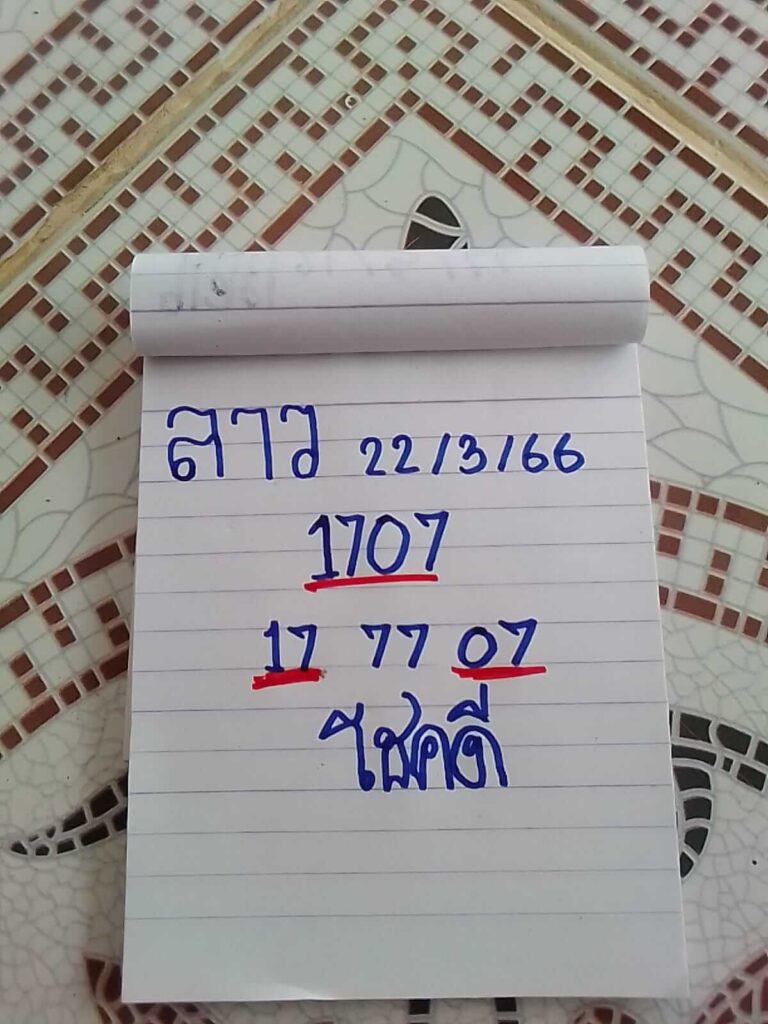 ลาว 22/3/66
1707
17 77 07
โชคดี